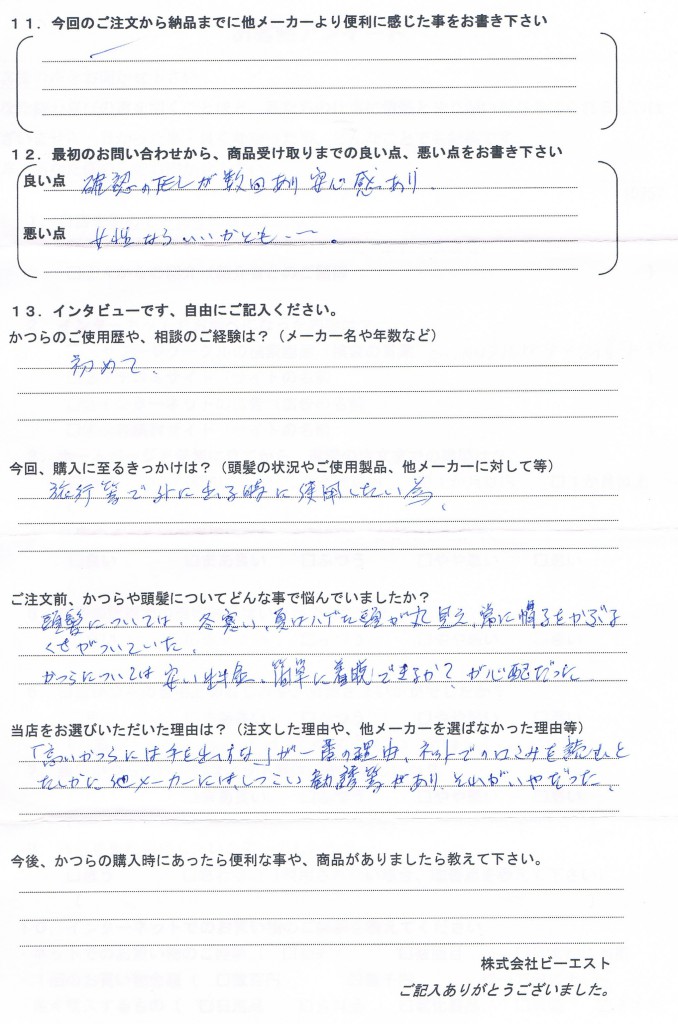 11．今回のご注文から納品までに他メーカーより便利に感じた事をお書き下さい
12．最初のお問い合わせから、商品受け取りまでの良い点、悪い点をお書き下さい
良い点 確認のTELが数回あり安心感あり.
悪い点 女性ならいいかとも・・〜。
13．インタビューです、自由にご記入ください。
かつらのご使用歴や、相談のご経験は？（メーカー名や年数など）
初めて.
今回、購入に至るきっかけは？（頭髪の状況やご使用製品、他メーカーに対して等）
旅行等で外に出る時に使用したい為、
ご注文前、かつらや頭髪についてどんな事で悩んでいましたか？
頭髪については、冬寒い、夏はハゲた頭が丸見え、常に帽子をかぶる
くせがついていた、
かつらについては安い料金、簡単に着脱できるか？が心配だった
当店をお選びいただいた理由は？（注文した理由や、他メーカーを選ばなかった理由等）
「高いかつらには手を出すな」が一番の理由、ネットでの口こみを読むと
たしかに他メーカーには、しつこい勧誘等があり、それがいやだった、
今後、かつらの購入時にあったら便利な事や、商品がありましたら教えて下さい。
株式会社ビーエスト
ご記入ありがとうございました。